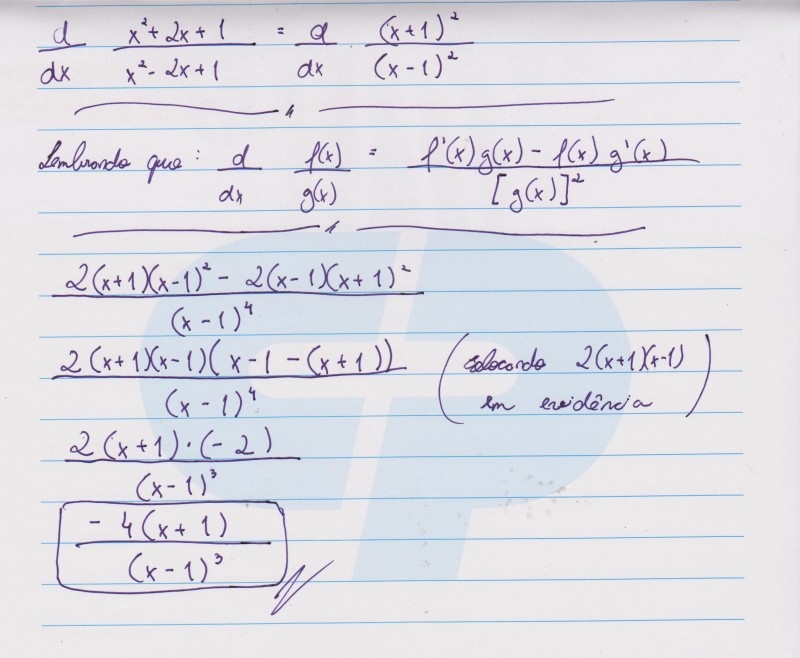 d/dx (x²+2x+1)/(x²-2x+1) = d/dx (x+1)²/(x-1)²
Lembrando que: d/dx f(x)/g(x) = (f'(x)g(x) - f(x)g'(x))/[g(x)]²
(2(x+1)(x-1)² - 2(x-1)(x+1)²)/(x-1)⁴
(2(x+1)(x-1)(x-1-(x+1)))/(x-1)⁴ (colocando 2(x+1)(x-1)
em evidência)
(2(x+1)·(-2))/(x-1)³
(-4(x+1))/(x-1)³